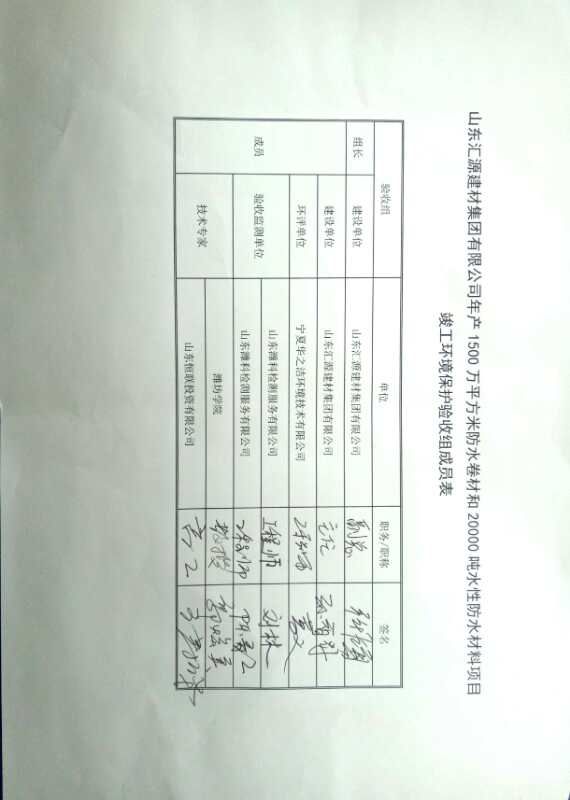 山东汇源建材集团有限公司年产 1500 万平方米防水卷材和 20000 吨水性防水材料项目
竣工环境保护验收组成员表
验收组 单位 职务/职称 签名
组长 建设单位 山东汇源建材集团有限公司 副总
成员 建设单位 山东汇源建材集团有限公司 主任
环评单位 宁夏华之洁环境技术有限公司 工程师
验收监测单位 山东潍科检测服务有限公司 工程师 刘林
山东潍科检测服务有限公司 工程师
技术专家 潍坊学院 教授
山东恒联投资有限公司 高工